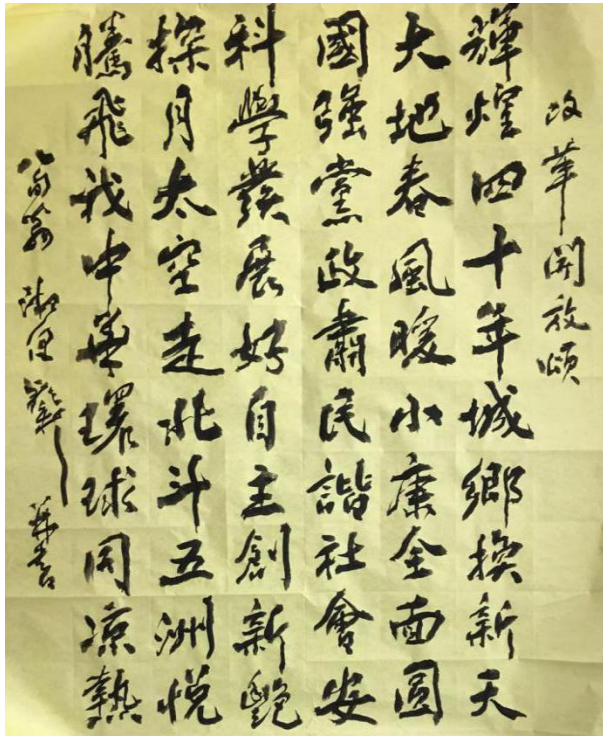 改革開放頌
輝煌四十年城鄉換新天
大地春風暖小康全面圓
國強黨政肅民諧社會安
科學發展好自主創新艷
探月太空走北斗五洲悅
騰飛我中華環球同涼熱
八旬翁 并書